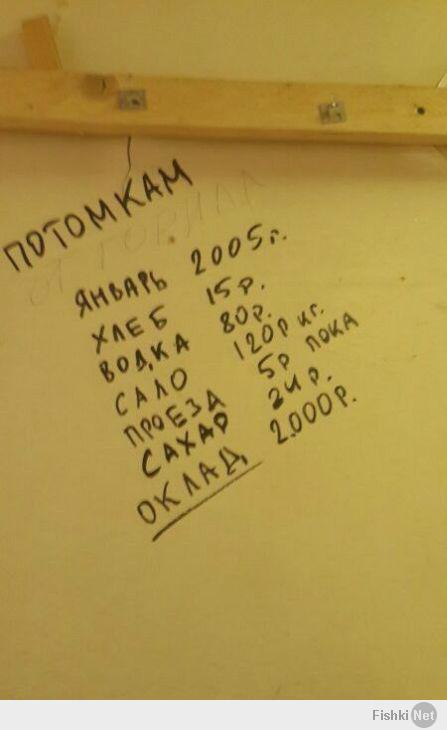 ПОТОМКАМ
ЯНВАРЬ 2005г.
ХЛЕБ 15р.
ВОДКА 80р.
САЛО 120р кг.
ПРОЕЗД 5р ПОКА
САХАР 24р.
ОКЛАД 2.000р.
Fishki Net